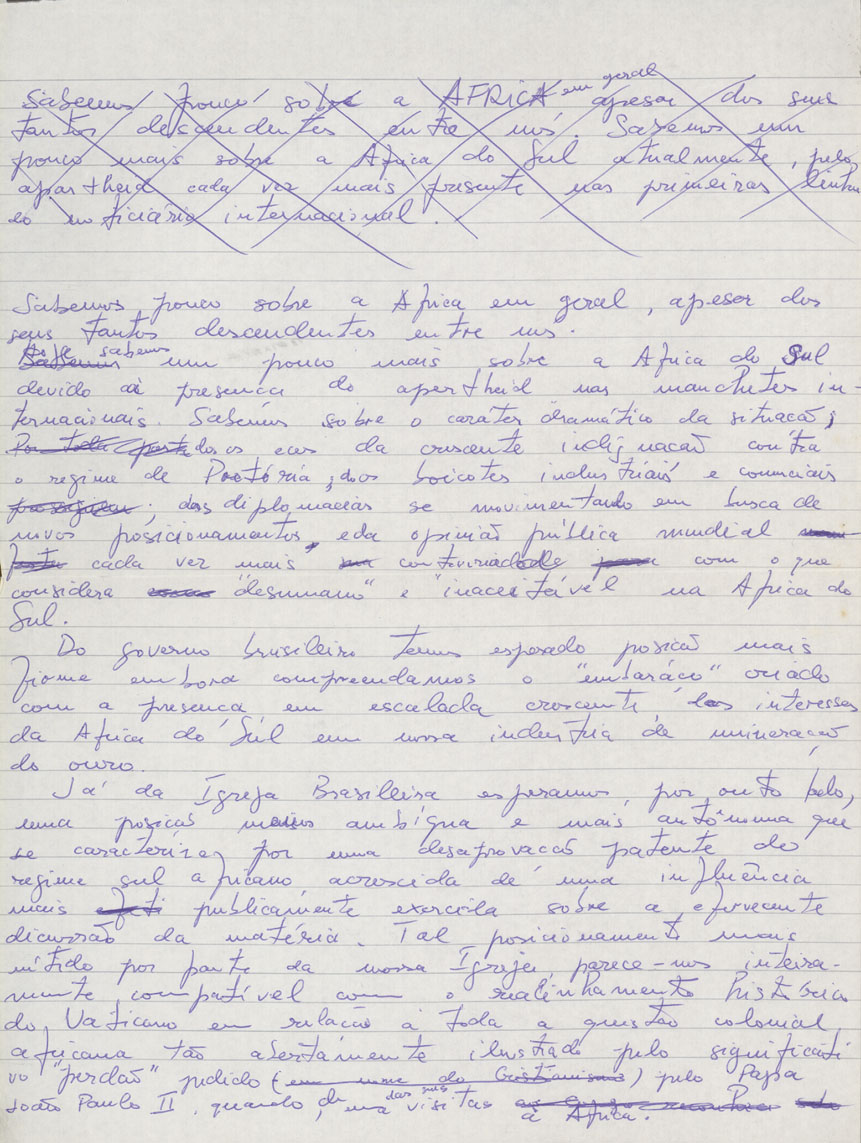 Sabemos pouco sobre a AFRICA em geral apesar dos seus
tantos descendentes entre nós. Sabemos um
pouco mais sobre a Africa do Sul atualmente, pelo
apartheid cada vez mais presente nas primeiras linhas
do noticiário internacional.
Sabemos pouco sobre a Africa em geral, apesar dos
seus tantos descendentes entre nos.
Sabemos sabemos um pouco mais sobre a Africa do Sul
devido a presença do apartheid nas manchetes in-
ternacionais. Sabemos sobre o caráter dramático da situação;
Por toda parte dos os ecos da crescente indignação contra
o regime de Pretória; dos boicotes industriais e comerciais
; das diplomacias se movimentando em busca de
novos posicionamentos, e da opinião pública mundial
cada vez mais com o que
considera "desumano" e "inaceitável" na Africa do
Sul.
Do governo brasileiro temos esperado posição mais
firme embora compreendamos o "embaraço" criado
com a presença em escalada crescente dos interesses
da Africa do Sul em nossa industria de mineração
do ouro.
Já da Igreja Brasileira esperamos, por outo lado,
uma posição menos ambígua e mais autônoma que
se caracterize por uma desaprovação patente do
regime sul africano, acrescida de uma influência
mais publicamente exercida sobre a efervecente
discussão da matéria. Tal posicionamento mais
nítido por parte da nossa Igreja, parece-nos inteira-
mente compatível com o realinhamento histórico
do Vaticano em relação a toda a questão colonial
africana tão abertamente ilustrado pelo significati
vo "perdão" pedido (em nome do Cristianismo) pelo Papa
João Paulo II, quando de uma das suas visitas à Africa.